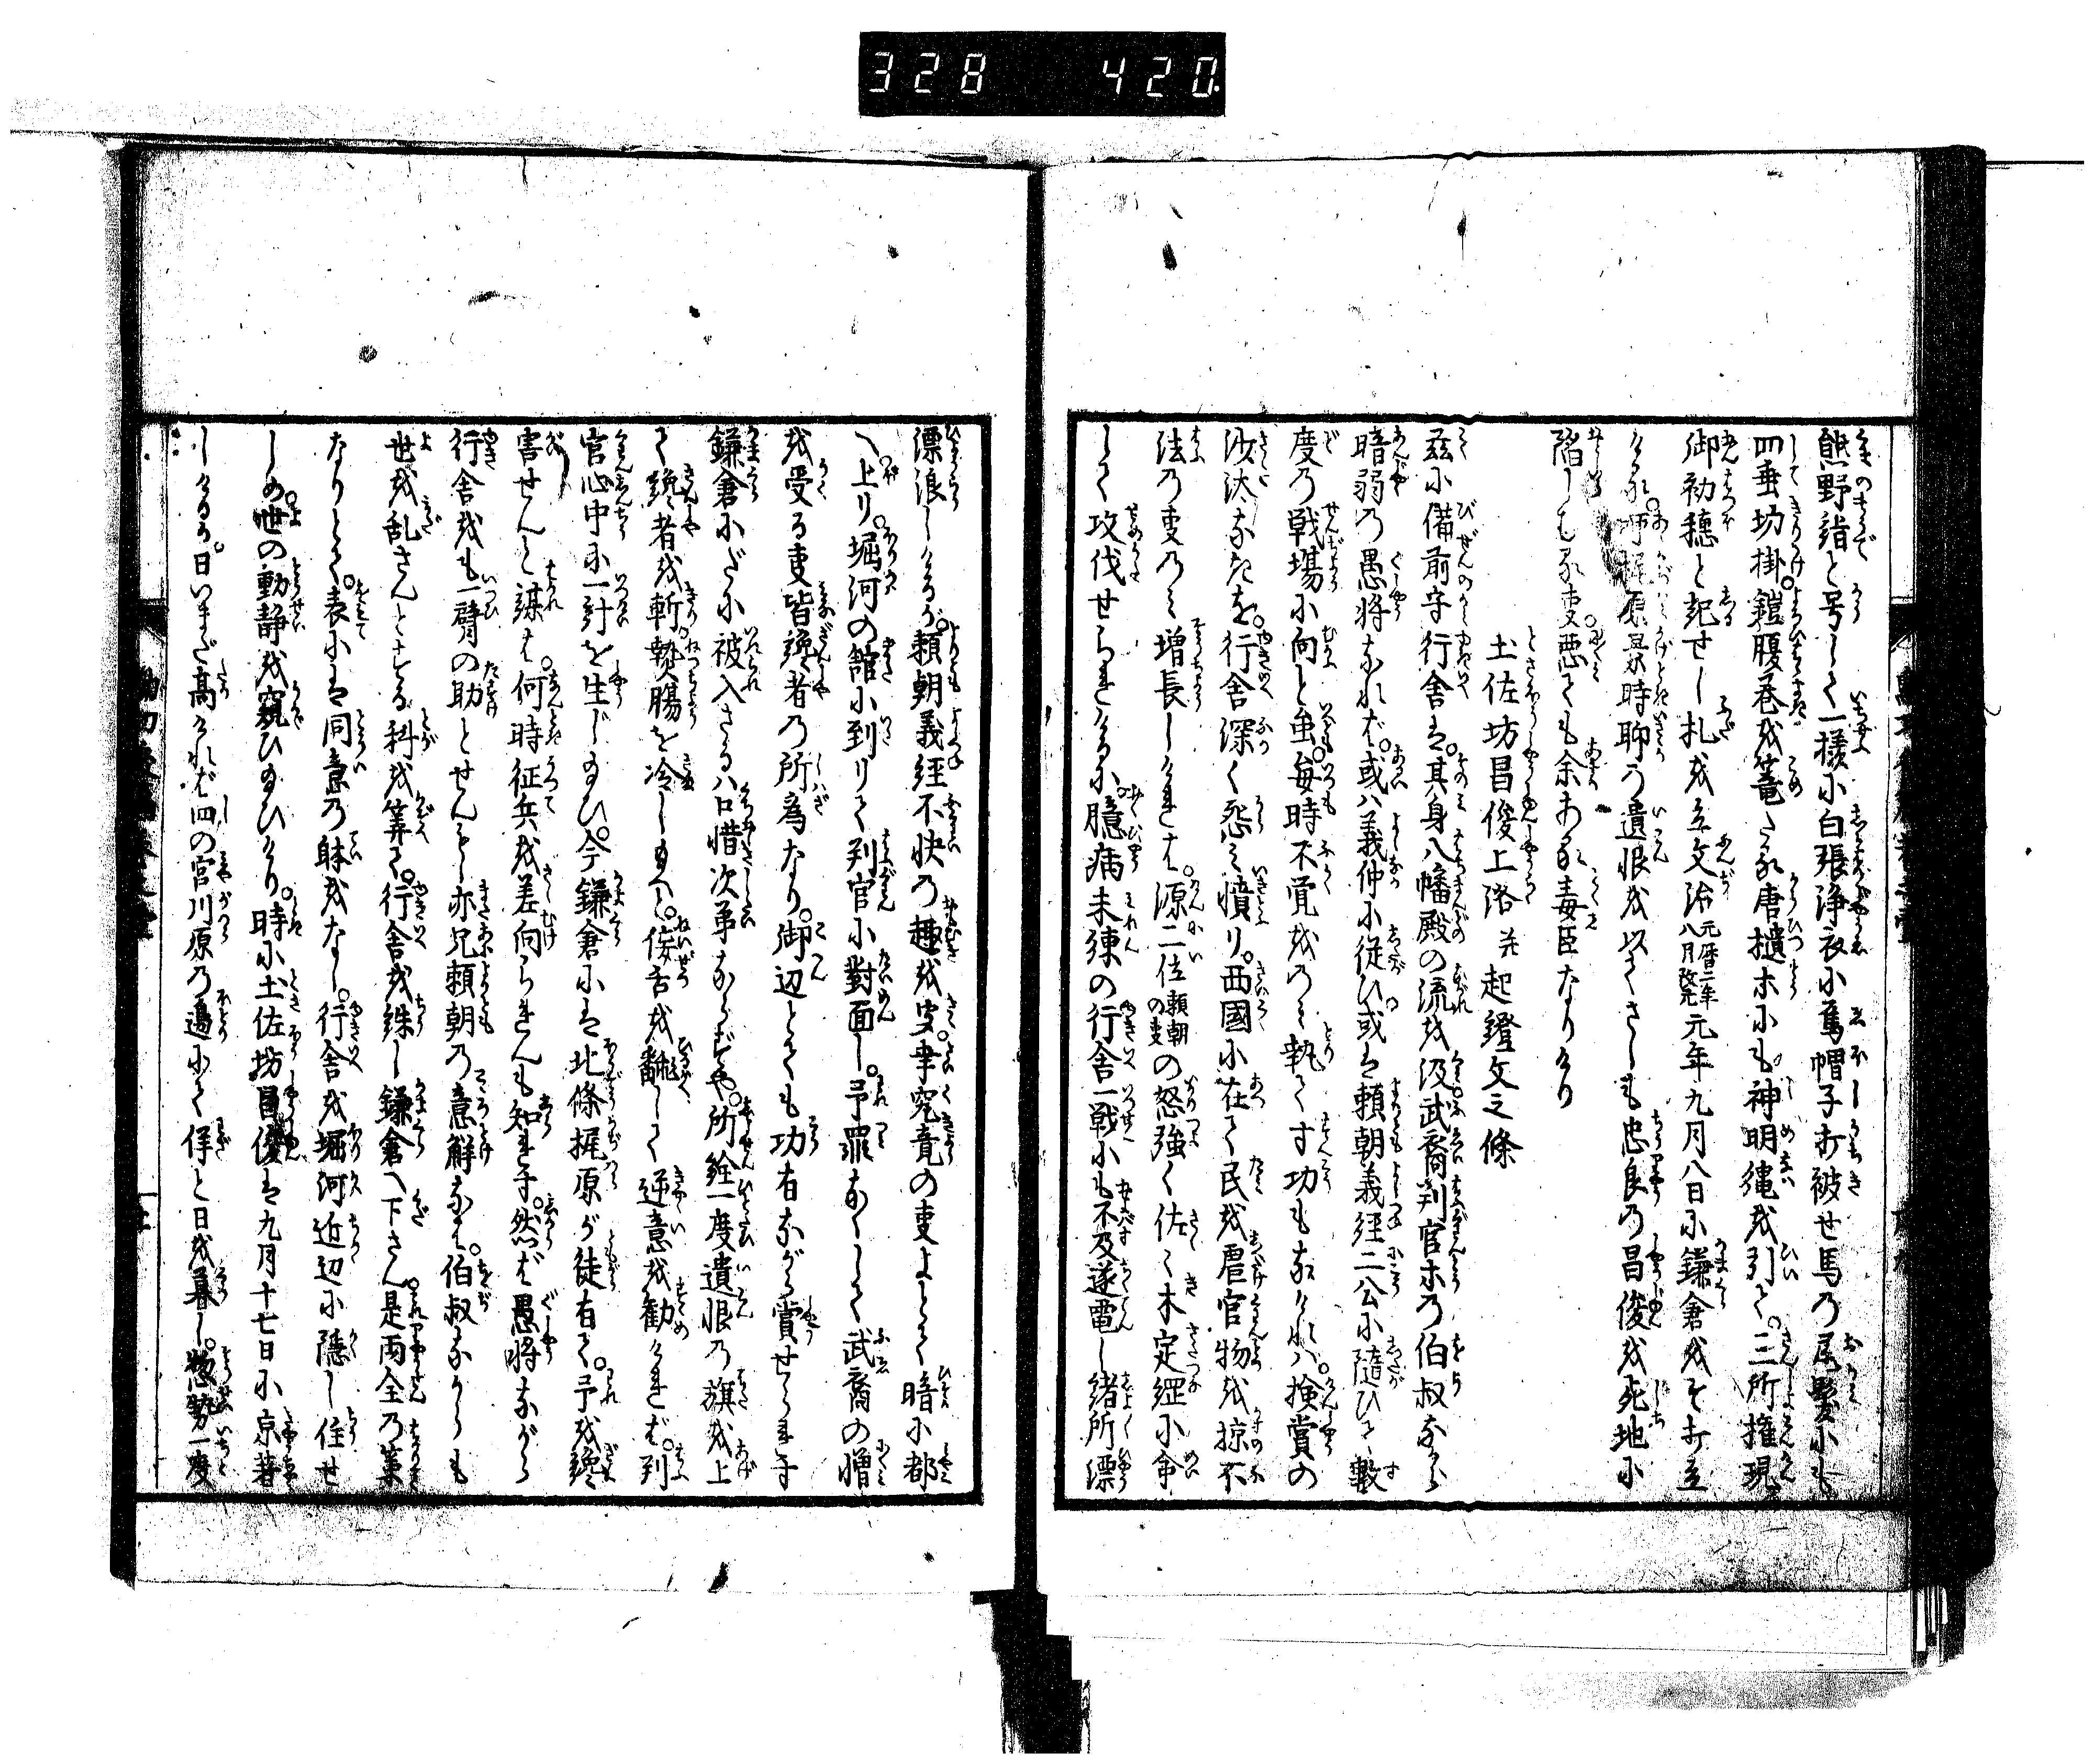 328 420
熊野詣と号して一様に白張浄衣に烏帽子打被せ馬の尾髪にも
四垂切掛。鎧腹巻を篭たる唐櫃ホにも神明縄を引て。三所権現
御初穂と記せし札を立文治元暦二年八月改元元年九月八日に鎌倉をぞ打立
ける。梶原景時聊の遺恨を以てさしも忠良の昌俊を死地に
陥しむる事。悪ても余ある毒臣なりけり
土佐坊昌俊上洛并起證文之條
茲に備前守行舎は。其身八幡殿の流を汲武裔判官ホの伯叔ながら
暗弱の愚将なれば。或ハ義仲に従ひ或は頼朝義経二公に随ひて数
度の戦場に向と虽。毎時不覚をのミ執て寸功もなけれハ。検賞の
沙汰なきを。行舎深く怨ミ憤り。西國に在て民を虐官物を掠不
法の事のミ増長しければ。源二位頼朝の事の怒強く佐々木定綱に命
して攻伐せられけるに。臆病未練の行舎一戦にも不及逐電し緒所漂
漂浪しけるが。頼朝義経不快の趣を安。幸究竟の事よとて暗に都
へ上り。堀河の館に到りて判官に對面し。予罪なくして武裔の憎
を受る事皆讒者の所為なり。御辺とても功有ながら賞せられず
鎌倉にだに被入さるハ口惜次第ならずや。所詮一度遺恨の旗を上
て讒者を斬熱腸を冷し給へ。佞舌を翻して逆意を勧ければ。判
官心中に一計を生じ給ひ。今鎌倉には北條梶原が徒有て。予を讒
害せんと謀ば。何時征兵を差向られんも知れず。然ば愚将ながら
行舎をも一臂の助とせんもし亦兄頼朝の意解なば。伯叔ながらも
世を乱さんとする科を算て。行舎を誅し鎌倉へ下さん。是両全の策
なりとて。表には同意の躰をなし。行舎を堀河近辺に隠し住せ
しめ世の動静を窺ひ給ひけり。時に土佐坊昌俊は九月十七日に京着
しけるが。日いまだ高ければ四の宮川原の邉にて俟と日を暮し。惣勢一度